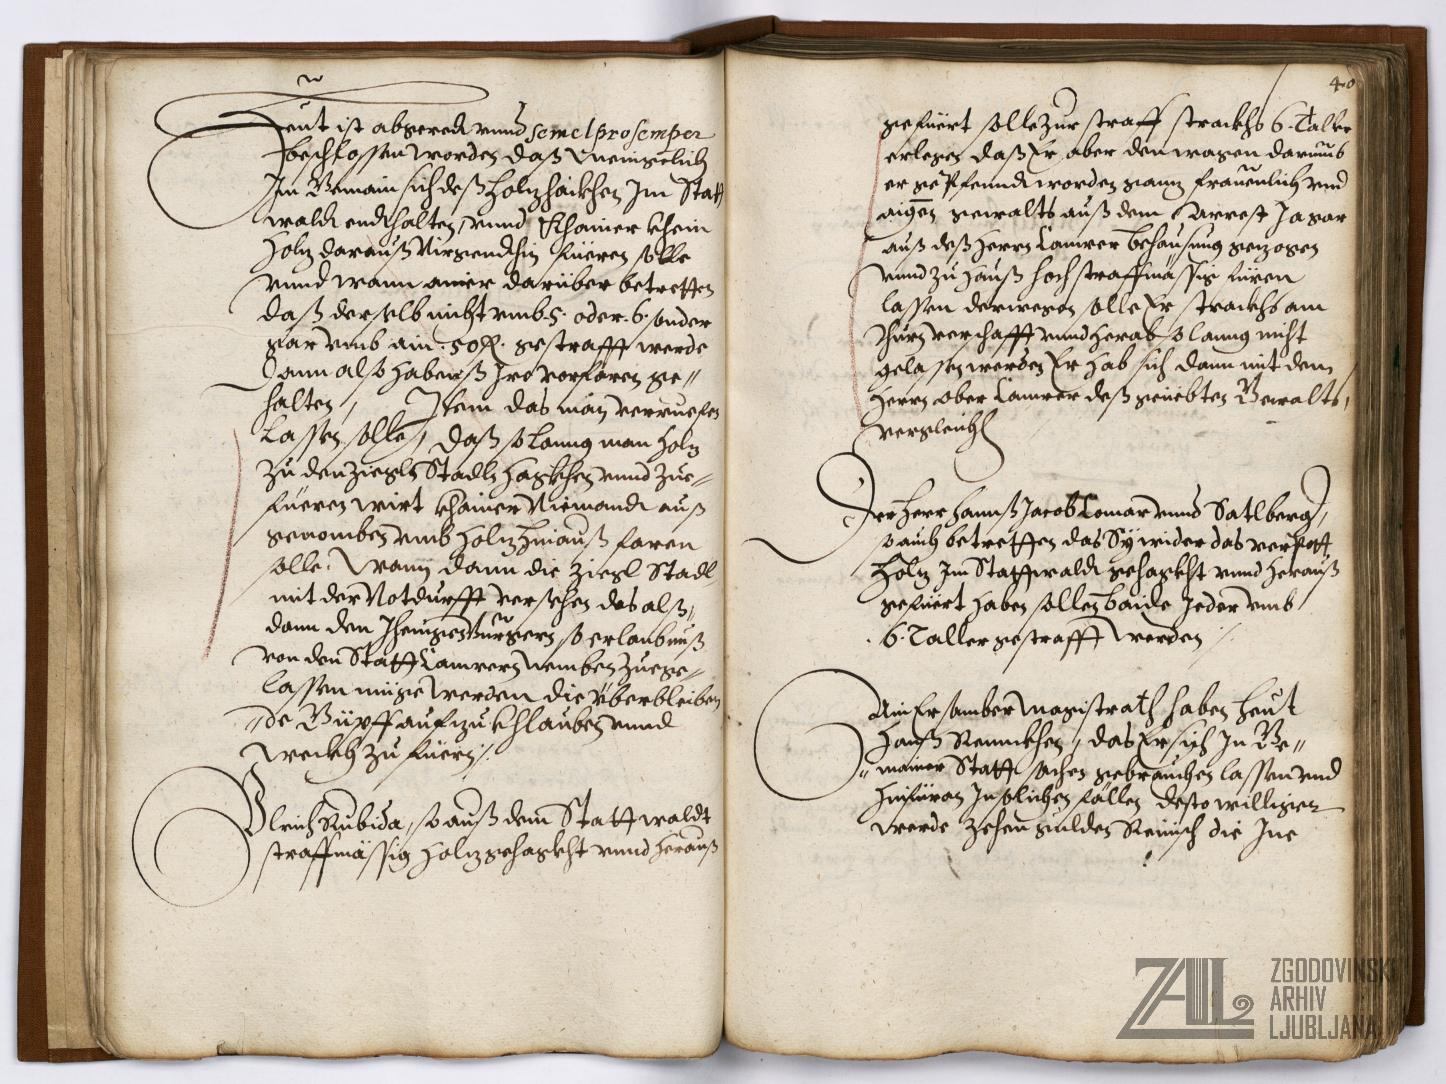 Heut ist abgeredt unnd semel pro semper
beschlossen worden daß Meingelich
Im Gemain sich deß Holzhackhen Im Statt
waldt endthalten, unnd khainer khein
Holz darauß Nirgendthin füeren solle
unnd wann ainer darüber betretten
daß derselb nicht umb 5. oder 6. sonder
gar umb ain 50 fl. gestrafft werde
dann also habenß Ire vorfaren ge„
halten, Item das man verruefen
Lassen solle, daß so lanng man Holz
zu den Ziegl Stadln Hagkhen unnd zue„
füeren wirt khainer Niemandt auß
genomben umb Holz hinauß faren
solle. Wann dann die Ziegl Stadl
mit der Notdurfft versehen das alß„
dann den Jhenigen Burgern so erlaubnuß
von den Statt Camrern nemben zuege„
lassen müge werden die überbleiben
de Güpff aufzukhlauben unnd
weckh zu füern.
Ulrich Rubida, so auß dem Statt waldt
straffmässig Holz gehagkht unnd herauß
40
gefüert solle zur straff strackhs 6. Taller
erlegen daß Er aber den wagen darumb
er gepfenndt worden ganz frauenlich unnd
aignen gewalts auß dem Arrest Ja gar
auß deß Herrn Camrer behausung gezogen
unnd zu Hauß hoch straffmässig füren
lassen derwegen solle Er strackhs am
thurn verschafft unnd herab so lanng nicht
gelassen werden Er hab sich dann mit dem
Herrn ober Camrer deß geüebten Gewalts
vergleicht
Der Herr Hannß Jacob Comar unnd Satlberg,
so auch betretten das Sy wider das verpott
Holz Im Stattwaldt gehagkht unnd herauß
gefüert haben sollen baide Jeder umb
6. Taller gestrafft werden
Ain Ersamber Magistrath haben heut
Hannß Rennkhen, das Er sich In Ge„
„mainer Statt sachen gebrauchen lassen und
hinfüron In solichen fällen desto williger
werde zehen gulden Reinisch die Ine
ZAL
ZGODOVINSKI
ARHIV
LJUBLJANA